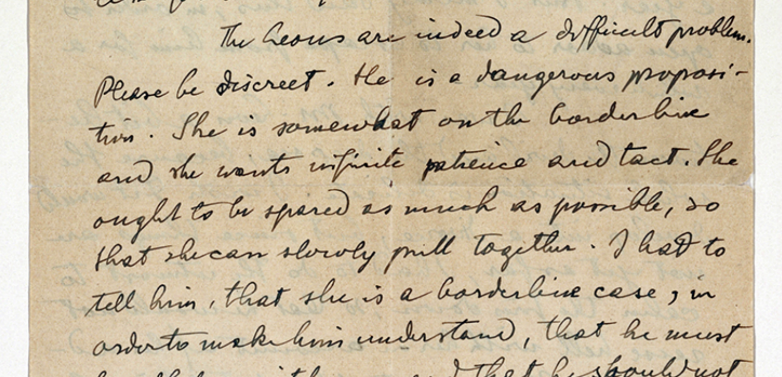 The Leons are indeed a difficult problem.
Please be discreet. He is a dangerous proposi-
tion. She is somewhat on the borderline
and she wants infinite patience and tact. She
ought to be spared as much as possible, so
that she can slowly pull together. I had to
tell him, that she is a borderline case, in
order to make him understand, that he must
and that he should not